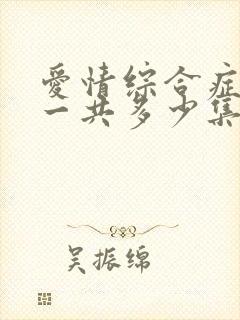 愛情综合症
一共多少集
吴振绵